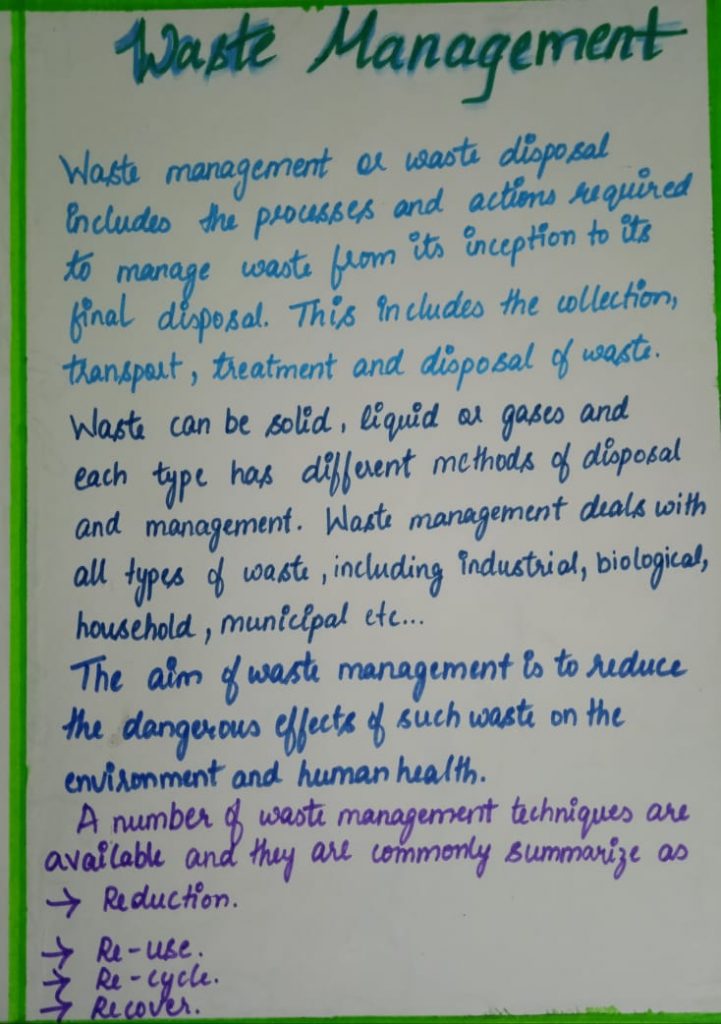 Waste Management
Waste management or waste disposal
includes the processes and actions required
to manage waste from its inception to its
final disposal. This includes the collection,
transport, treatment and disposal of waste.
Waste can be solid, liquid or gases and
each type has different methods of disposal
and management. Waste management deals with
all types of waste, including industrial, biological,
household, municipal etc...
The aim of waste management is to reduce
the dangerous effects of such waste on the
environment and human health.
A number of waste management techniques are
available and they are commonly summarize as
→ Reduction.
→ Re-use.
→ Re-cycle.
→ Recover.